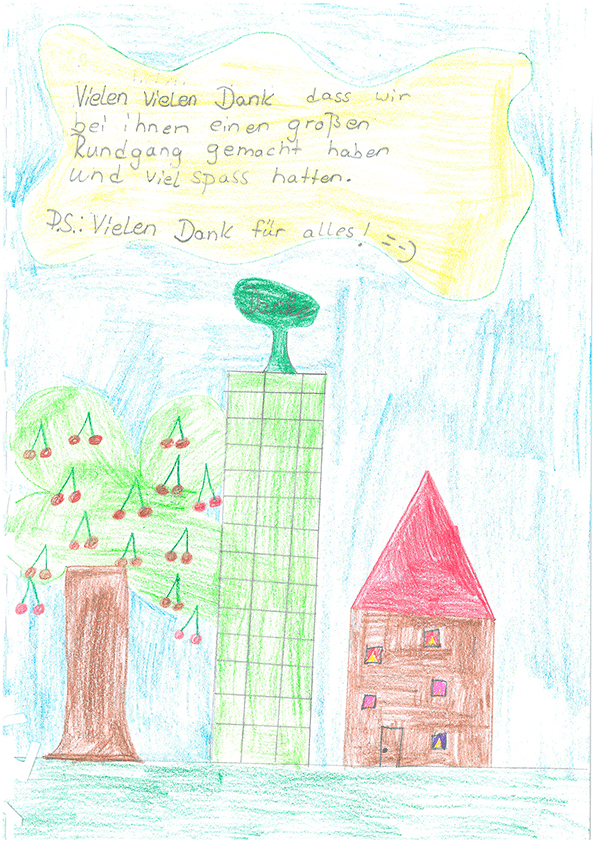 Vielen vielen Dank dass wir
bei ihnen einen großen
Rundgang gemacht haben
und viel spass hatten.
P.S.: Vielen Dank für alles! =-)